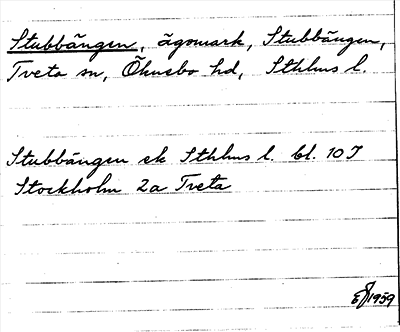 Stubbängen, ägomark, Stubbängen,
Tveta sn, Öknebo hd, Sthlms l.
Stubbängen ek Sthlms l. bl. 10 J
Stockholm 2a Tveta
1959